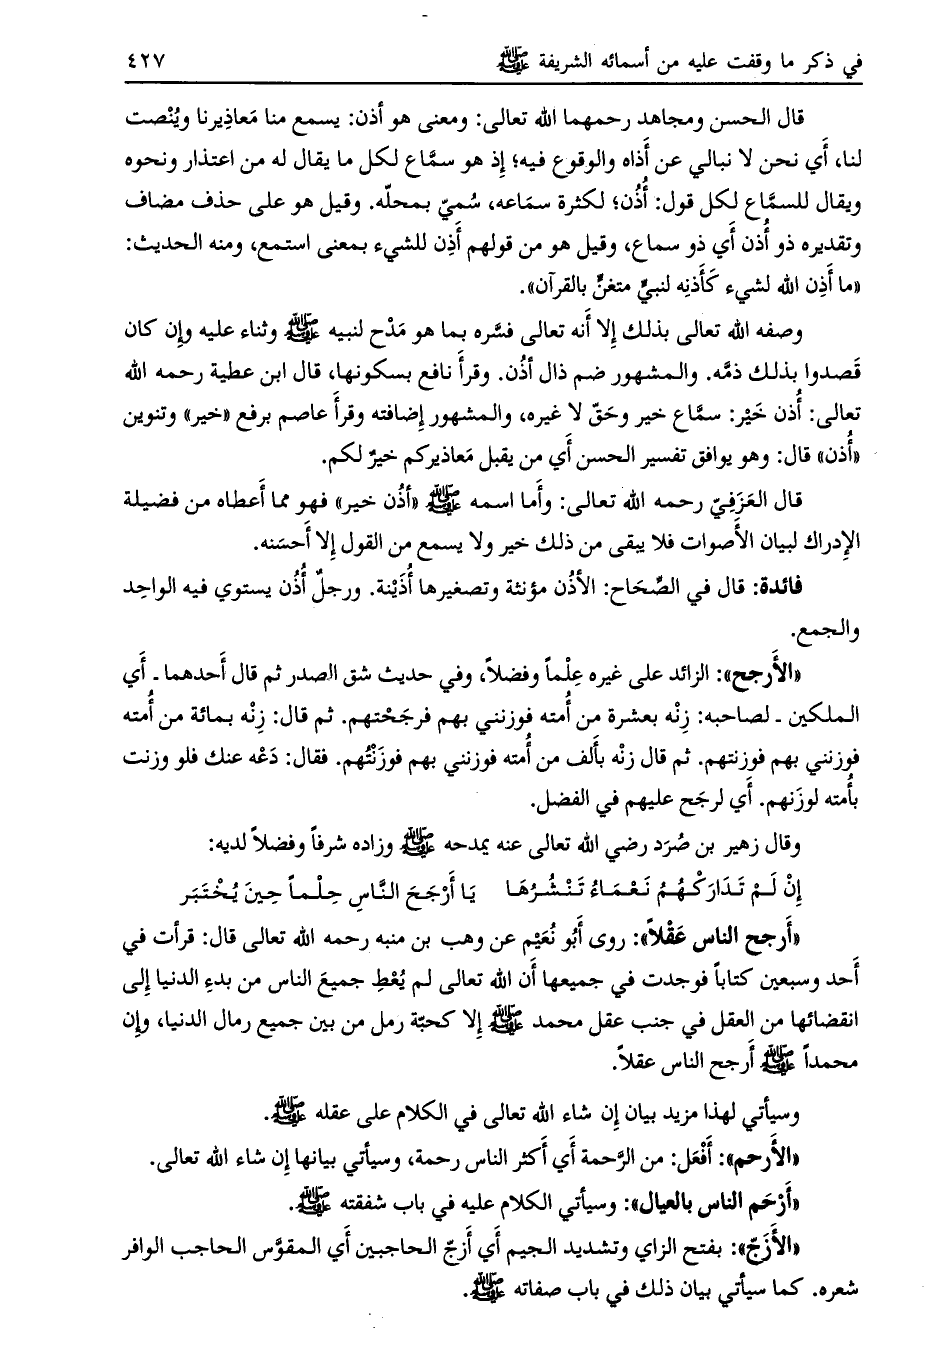 في ذكر ما وقفت عليه من أسمائه الشريفة ﷺ ٤٢٧
قال الحسن ومجاهد رحمهما الله تعالى: ومعنى هو أذن: يسمع منا مَعاذِيرنا ويُنْصت
لنا، أَي نحن لا نبالي عن أَذاه والوقوع فيه؛ إذ هو سمَّاع لكل ما يقال له من اعتذار ونحوه
ويقال للسمَّاع لكل قول: أُذُن؛ لكثرة سمَاعه، سُميّ بمحلّه. وقيل هو على حذف مضاف
وتقديره ذو أُذن أَي ذو سماع، وقيل هو من قولهم أَذِن للشيء بمعنى استمع، ومنه الحديث:
«ما أَذِن الله لشيء كَأَذنِه لنبيٍّ متغنٍّ بالقرآن».
وصفه الله تعالى بذلك إلا أَنه تعالى فسَّره بما هو مَدْح لنبيه ﷺ وثناء عليه وإن كان
قَصدوا بذلك ذمَّه. والمشهور ضم ذال أذُن. وقرأَ نافع بسكونها، قال ابن عطية رحمه الله
تعالى: أُذن خَيْر: سمَّاع خير وحَقّ لا غيره، والمشهور إضافته وقرأَ عاصم برفع «خير» وتنوين
«أُذن» قال: وهو يوافق تفسير الحسن أَي من يقبل مَعاذيركم خيرٌ لكم.
قال العَزَفِيّ رحمه الله تعالى: وأَما اسمه ﷺ «أذُن خير» فهو مما أَعطاه من فضيلة
الإدراك لبيان الأَصوات فلا يبقى من ذلك خير ولا يسمع من القول إلا أَحسَنه.
فائدة: قال في الصِّحَاح: الأذُن مؤنثة وتصغيرها أُذَيْنة. ورجلٌ أُذُن يستوي فيه الواحِد
والجمع.
«الأَرجح»: الزائد على غيره عِلْماً وفضلاً، وفي حديث شق الصدر ثم قال أَحدهما ـ أَي
الملكين ـ لصاحبه: زِنْه بعشرة من أُمته فوزنني بهم فرجَحْتهم. ثم قال: زِنْه بمائة من أُمته
فوزنني بهم فوزنتهم. ثم قال زنْه بأَلف من أمته فوزنني بهم فوزَنْتُهم. فقال: دَعْه عنك فلو وزنت
بأُمته لوزَنهم. أَي لرجَح عليهم في الفضل.
وقال زهير بن صُرَد رضي الله تعالى عنه يمدحه ﷺ وزاده شرفاً وفضلاً لديه:
إنْ لَمْ تَدَارَكْهُمُ نَعْمَاءُ تَنْشُرُهَا يَا أَرْجَحَ النَّاسِ حِلْماً حِينَ يُخْتَبَر
«أَرجح الناس عَقْلاً»: روى أَبُو نُعَيْم عن وهب بن منبه رحمه الله تعالى قال: قرأت في
أَحد وسبعين كتاباً فوجدت في جميعها أَن الله تعالى لم يُعْطِ جميعَ الناس من بدءِ الدنيا إلى
انقضائها من العقل في جنب عقل محمد ﷺ إلا كحبّة رمل من بين جميع رمال الدنيا، وإن
محمداً ﷺ أَرجح الناس عقلاً.
وسيأتي لهذا مزيد بيان إن شاء الله تعالى في الكلام على عقله ﷺ.
«الأَرحم»: أَفْعَل: من الرَّحمة أَي أَكثر الناس رحمة، وسيأتي بيانها إن شاء الله تعالى.
«أَرْحَم الناس بالعيال»: وسيأتي الكلام عليه في باب شفقته ﷺ.
«الأَزَجّ»: بفتح الزاي وتشديد الجيم أَي أَزجّ الحاجبين أَي المقوَّس الحاجب الوافر
شعره. كما سيأتي بيان ذلك في باب صفاته ﷺ.